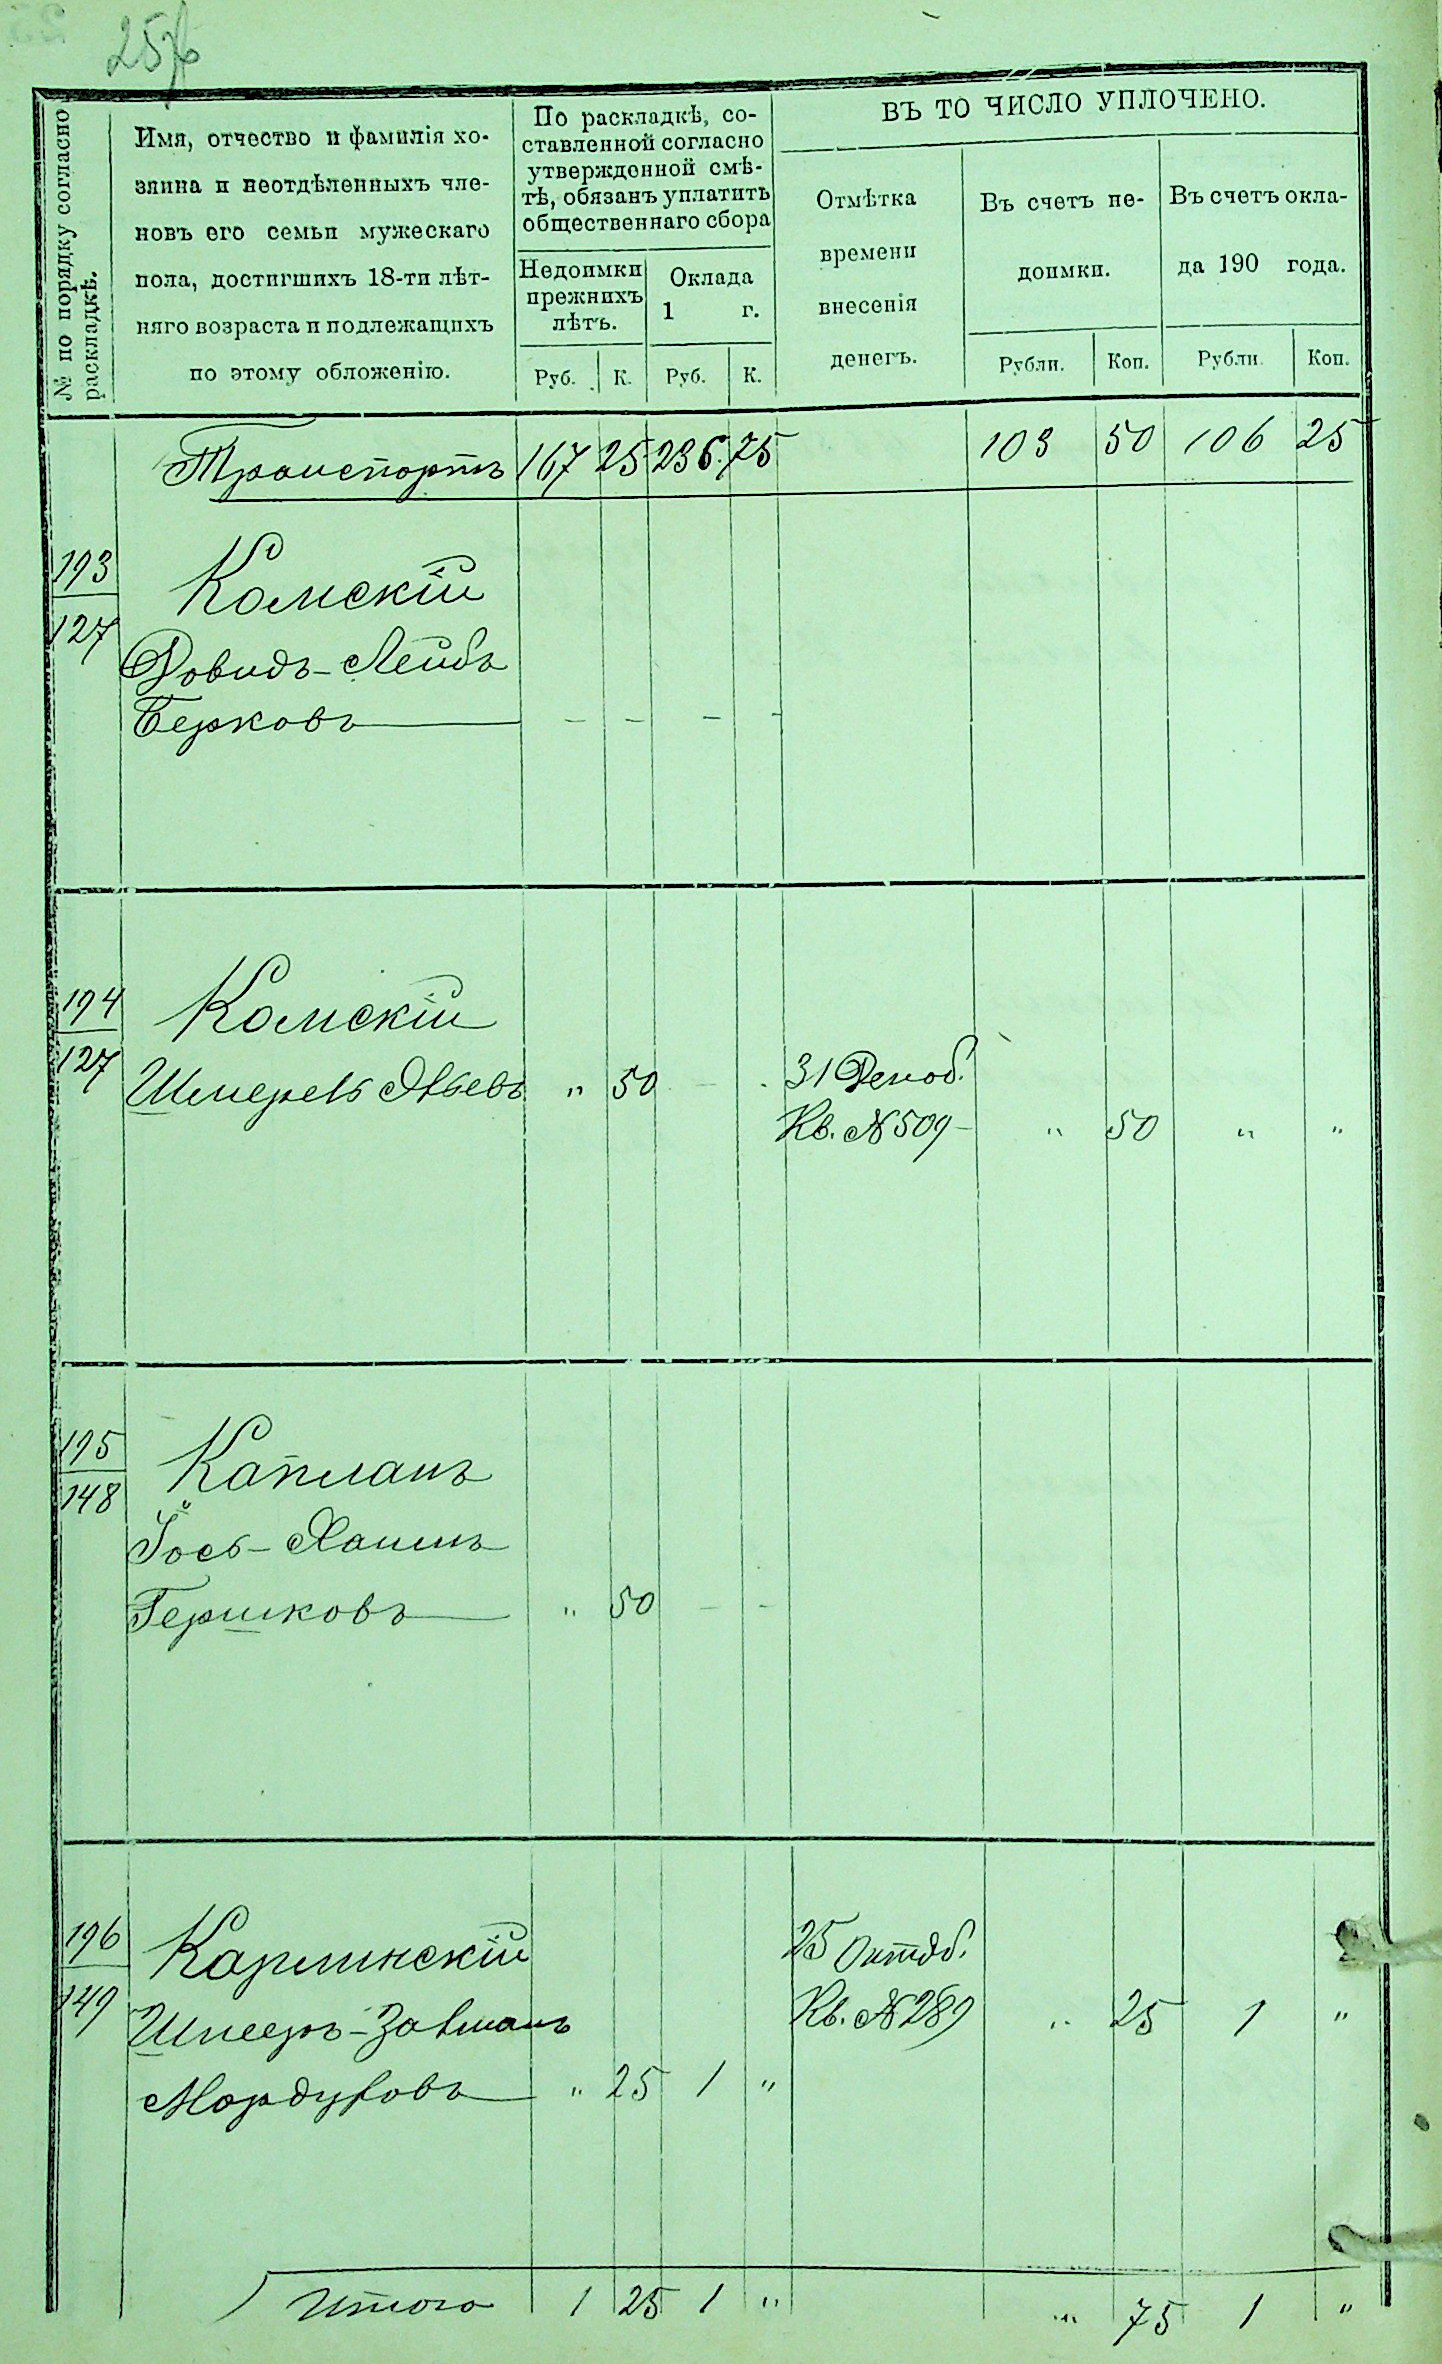 257
№ по порядку согласно
раскладкѣ.
Имя, отчество и фамилія хо-
зяина и неотдѣленныхъ чле-
новъ его семьи мужескаго
пола, достигшихъ 18-ти лѣт-
няго возраста и подлежащихъ
по этому обложенію.
По раскладкѣ, со-
ставленной согласно
утвержденной смѣ-
тѣ, обязанъ уплатить
общественнаго сбора
Недоимки
прежнихъ
лѣтъ.
Оклада
1 г.
Руб. К. Руб. К.
ВЪ ТО ЧИСЛО УПЛОЧЕНО.
Отмѣтка
времени
внесенія
денегъ.
Въ счетъ не-
доимки.
Въ счетъ окла-
да 190 года.
Рубли. Коп. Рубли. Коп.
Транспортъ 167 25 236 75 103 50 106 25
193
127
Камскій
Довидъ-Лейба
Берковъ — — — —
194
127
Камскій
Шмерель Явьевъ " 50 — — 31 Декаб.
Кв. № 509 — " 50 " "
195
148
Капланъ
Іось-Хаимъ
Гершковъ " 50 — —
196
149
Карлинскій 25 Октяб.
Шмеръ-Залманъ Кв. № 289 " 25 1 "
Мордуховъ " 25 1 "
Итого 1 25 1 " " 75 1 "